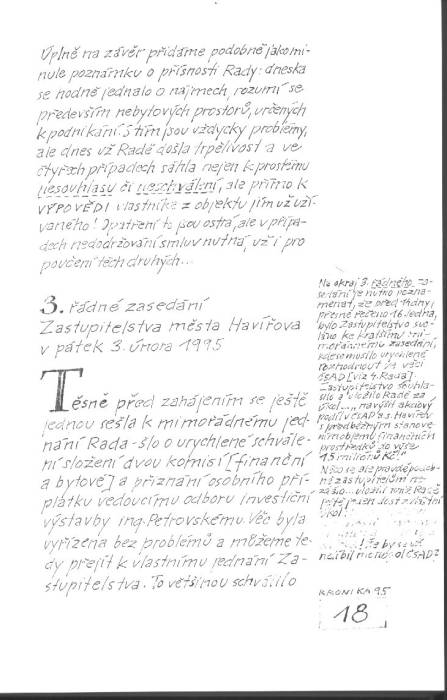 Úplně na závěr přidáme podobně jako mi-
nule poznámku o přísnosti Rady: dneska
se hodně jednalo o nájmech, rozumí se
především nebytových prostorů, určených
k podnikání. S tím jsou vždycky problémy,
ale dnes už Radě došla trpělivost a ve
čtyřech případech sáhla nejen k prostému
nesouhlasu či neschválení, ale přímo k
VÝPOVĚDI vlastníke z objektu jím už uží-
vaného! Opatření to jsou ostrá, ale v přípa-
dech nedodržování smluv nutná, už i pro
poučení těch druhých...
3. řádné zasedání
Zastupitelstva města Havířova
v pátek 3. února 1995
Těsně před zahájením se ještě
jednou sešla k mimořádnému jed-
nání Rada - šlo o urychlené schvále-
ní složení dvou komisí [finanční
a bytové] a přiznání osobního pří-
platku vedoucímu odboru investiční
výstavby ing. Petrovskému. Věc byla
vyřízena bez problémů a můžeme te-
dy přejít k vlastnímu jednání Za-
stupitelstva. To většinou schválilo
Na okraj 3. řádného za-
sedání je nutno pozna-
menat, že před 14 dny,
přesně řečeno 16. ledna,
bylo Zastupitelstvo svo-
láno ke krátkému mi-
mořádnému zasedání,
kde se muselo urychleně
rozhodnout ve věci
ČSAD [viz 4. Rada].
Zastupitelstvo souhla-
silo a uložilo Radě za
úkol „... navýšit akciový
podíl v ČSAD a.s. Havířov
s předběžným stanove-
ním objemu finančních
prostředků do výše
1,5 milionů Kč."
zastupitelům
uložili Radě
ještě jeden
úkol
nelíbil ČSAD?
KRONIKA 95
18